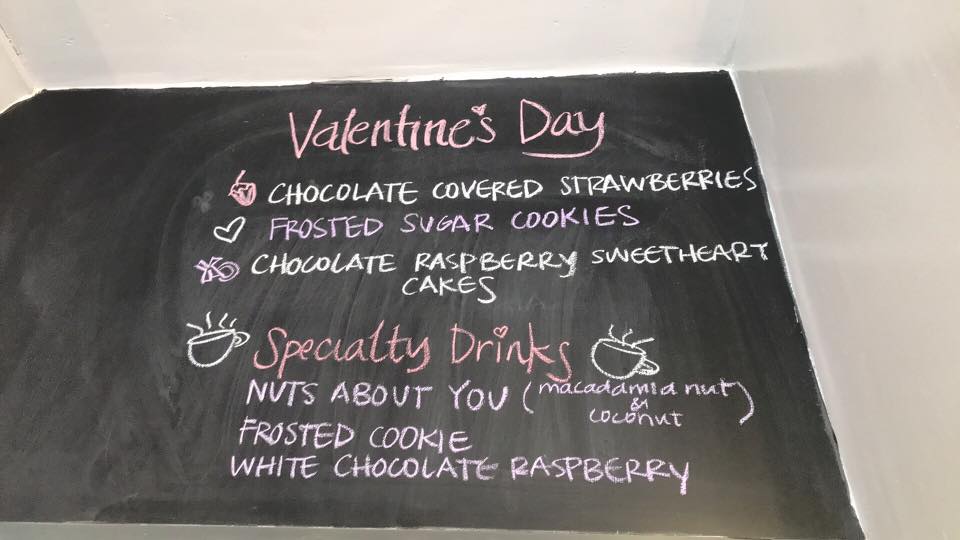 Valentine's Day
CHOCOLATE COVERED STRAWBERRIES
FROSTED SUGAR COOKIES
CHOCOLATE RASPBERRY SWEETHEART
CAKES
Specialty Drinks
NUTS ABOUT YOU (macadamia nut
&
coconut)
FROSTED COOKIE
WHITE CHOCOLATE RASPBERRY